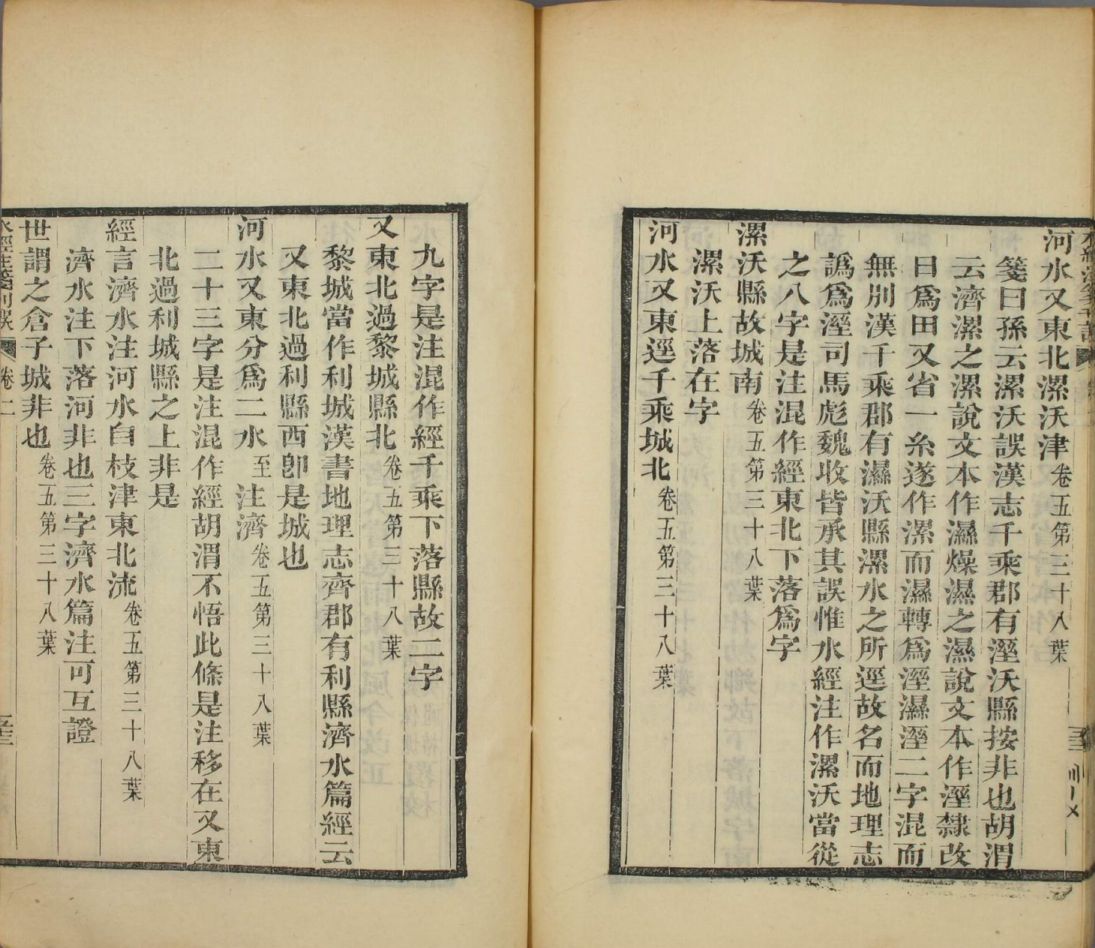 河水又東北漯沃津卷五第三十八葉
箋曰孫云漯沃誤漢志千乘郡有溼沃縣按非也胡渭
云濟漯之漯說文本作濕燥濕之濕說文本作溼隸改
曰爲田又省一糸遂作漯而濕轉爲溼濕溼二字混而
無別漢千乘郡有濕沃縣漯水之所逕故名而地理志
譌爲溼司馬彪魏收皆承其誤惟水經注作漯沃當從
之八字是注混作經東北下落爲字
漯沃縣故城南卷五第三十八葉
漯沃上落在字
河水又東逕千乘城北卷五第三十八葉
九字是注混作經千乘下落縣故二字
又東北過黎城縣北卷五第三十八葉
黎城當作利城漢書地理志齊郡有利縣濟水篇經云
又東北過利縣西卽是城也
河水又東分爲二水至注濟卷五第三十八葉
二十三字是注混作經胡渭不悟此條是注移在又東
北過利城縣之上非是
經言濟水注河水自枝津東北流卷五第三十八葉
濟水注下落河非也三字濟水篇注可互證
世謂之倉子城非也卷五第三十八葉
水經注箋刊誤 卷二